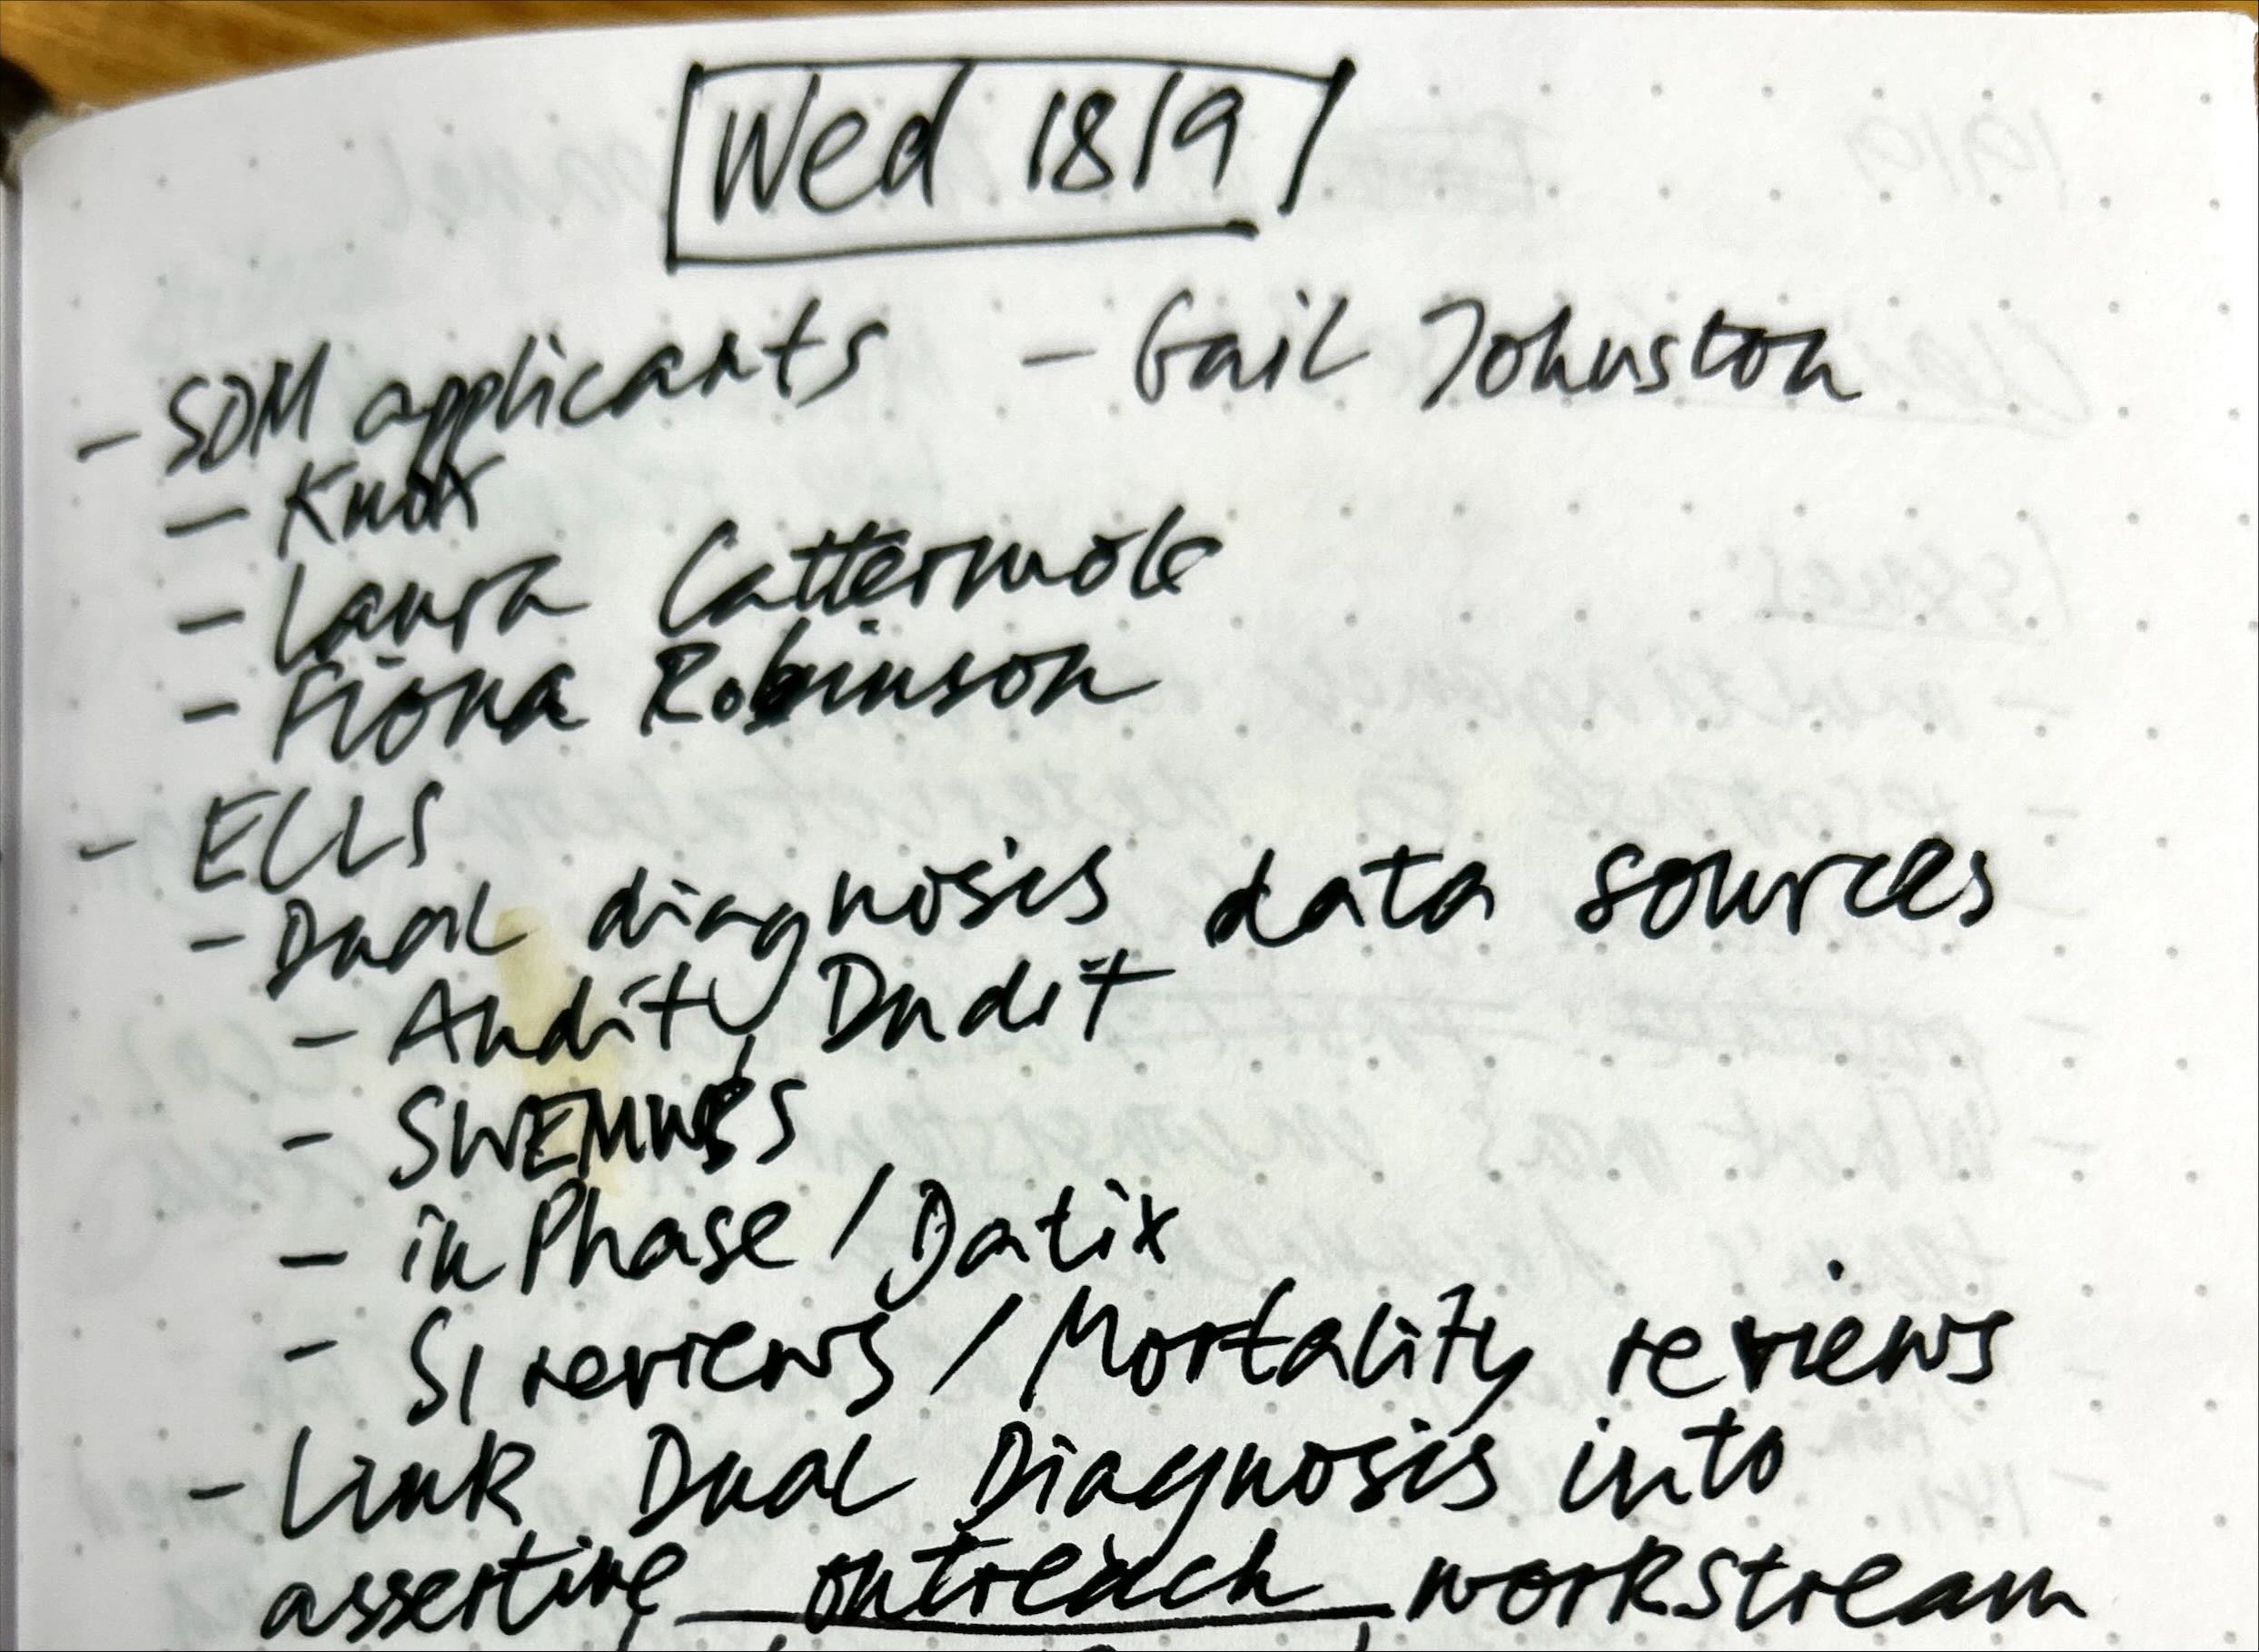 Wed 18/9
- SDM applicants - Gail Johnston
- Knox
- Laura Cattermole
- Fiona Robinson
- ECLS
- Dual diagnosis data sources
- Audit, Dudit
- SWEMWBS
- in Phase / Datix
- SI reviews / Mortality reviews
- Link Dual Diagnosis into
assertive outreach workstream